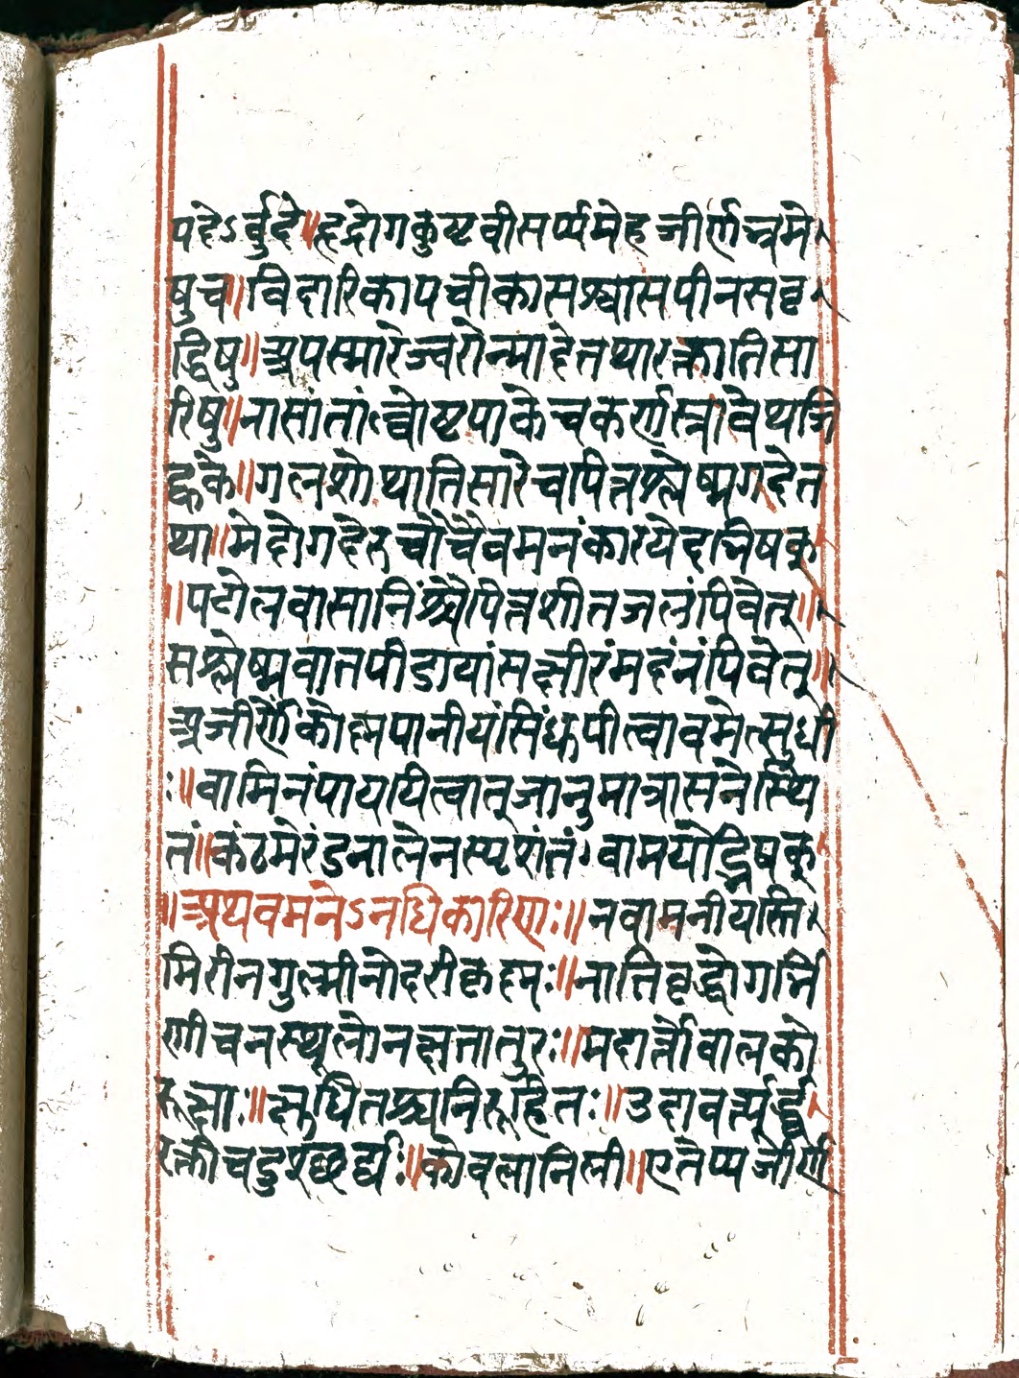 पदेऽर्वुदे॥हृद्रोगकुष्टवीसर्प्पमेहजीर्णन्रमे
षुच॥विदारिकापचीकासश्वासपीनसवृ
द्धिषु॥अपस्मारेज्वरोन्मादेतथारक्तातिसा
रिषु॥नासांतांल्वोष्टपाकेचकर्णस्त्रावेथजि
ह्वके॥गलशोथातिसारेचपित्तश्लेष्मगदेत
था॥मेदोगदेरुचौचैवमनंकारयेद्भिषक्
॥पटोलवासानिंश्चैपित्तशीतजलंपिवेत्॥
सश्लेष्मवातपीडायांसक्षीरंमदनंपिवेत्॥
अजीर्णेकोह्मपानीयंसिंधुपीत्वावमेत्सुधी
ः॥वामिनंपाययित्वातुजानुमात्रासनेस्थि
तं॥कंठमेरंडनालेनस्पृशंतंवामयेद्भिषक्
॥अथवमनेऽनधिकारिणः॥नवामनीयस्ति
मिरीनगुल्मीनोदरीकृशः॥नातिवृद्धोगर्भि
णीचनस्थूलोनक्षतातुरः॥मदार्त्तोवालको
रुक्षः॥क्षुधितश्चनिरूहितः॥उदावर्त्त्यूर्द्ध्व
रक्तीचदुश्छर्द्यः॥केवलानिली॥एतेप्यजीर्ण